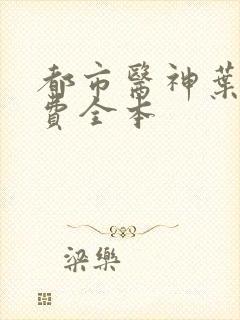 都市醫神葉
費全本
梁樂